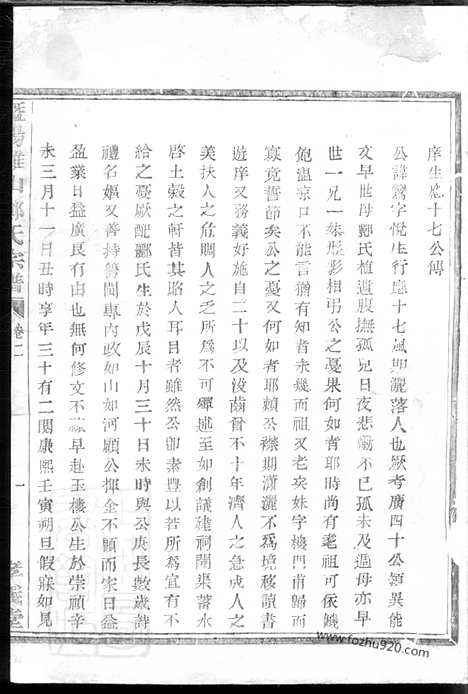 庠生應十七公傳
公諱鷟字悅生行應十七風期灑落人也厥考廣四十公穎異能
文早世母鄭氏植遺腹撫孤兄日夜悲號不已孤未及過母亦早
世一兄一妹形影相弔公之憂果何如者耶時尚有耄祖可依饑
飽溫涼口不能言猶有知者未幾而祖又老矣妹字樓門甫歸而
寡竟誓節矣公之憂又何如者耶賴公襟期瀟灑不為境移讀書
遊庠又務義好施自二十以及沒齒曾不十年濟人之急成人之
美扶人之顛以義舉之所為不可殫述至如創議建祠開渠蓄水
啟土穀之軒皆其昭人耳目者雖然公卽素豐以若所為宜有不
給之憂厥配酈氏生於戊辰十月三十日未時與公庚長數歲詩
禮名嫗又善持籌閫內政如山如河顧公揮金不顧而家日益
盈業日益廣良有由也無何修文不祿早赴玉樓公生於崇禎辛
未三月十一日丑時享年三十有二閱康熙壬寅朔旦假寐如見
暨陽 山 氏宗譜 卷二
一
孝義堂
www.fozhu920.com